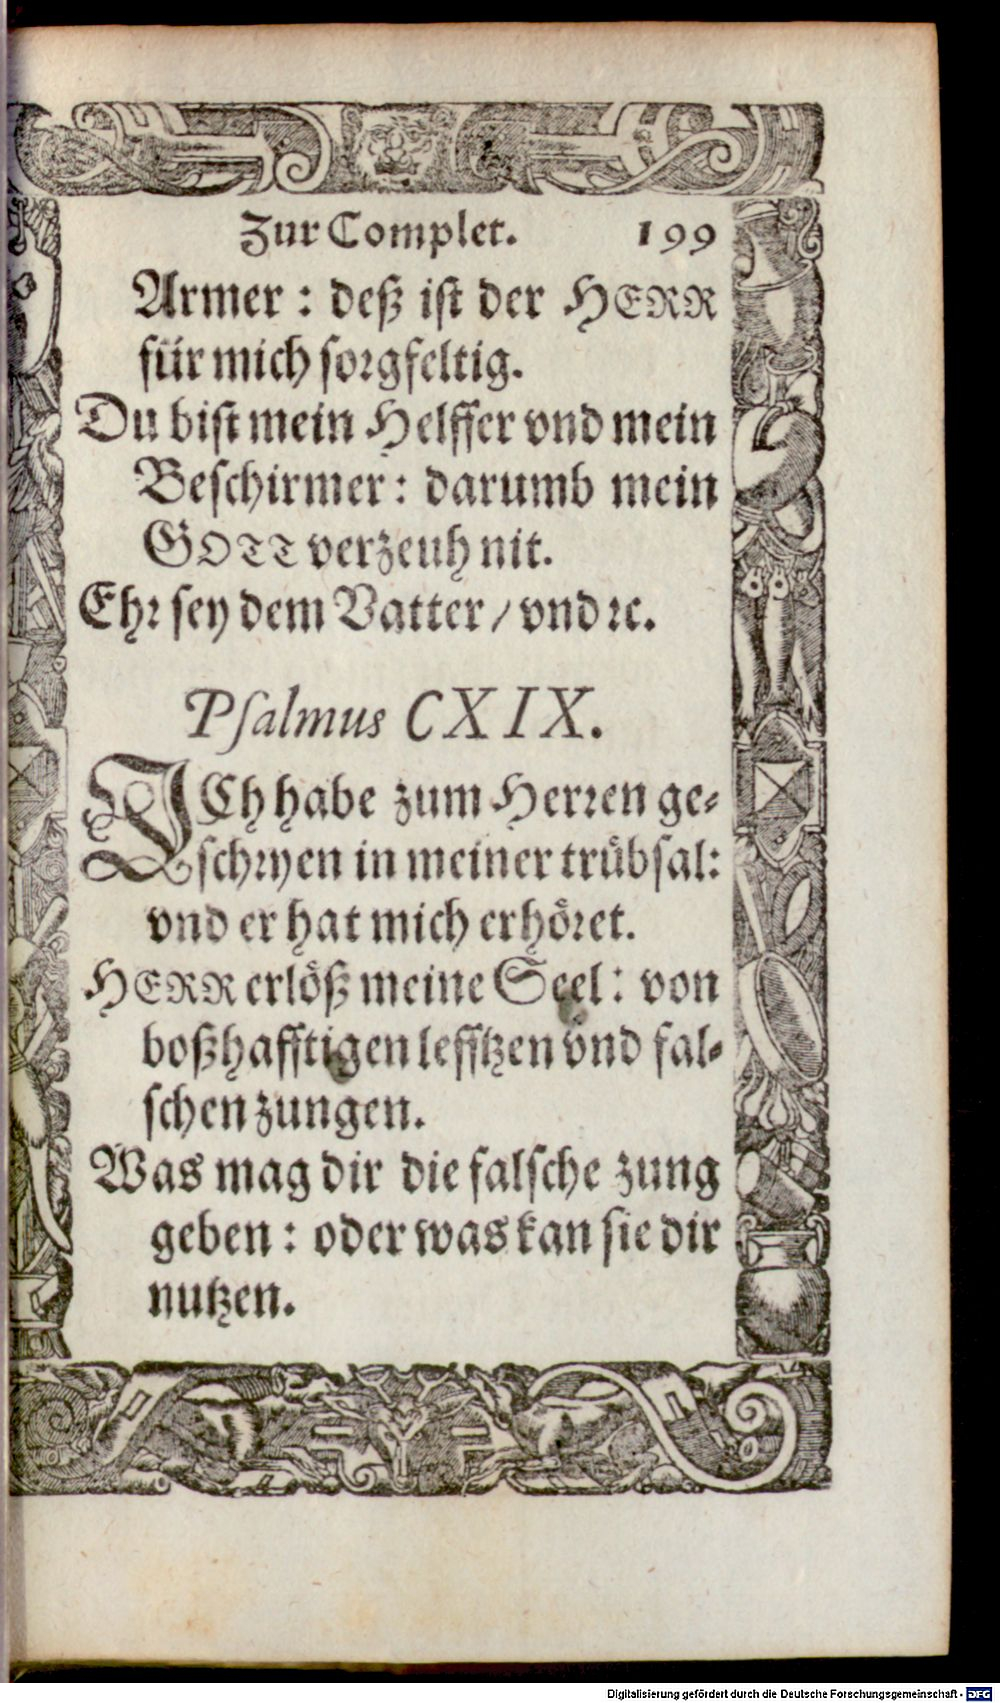 Zur Complet. 199
Armer : deß ist der HERR
für mich sorgfeltig.
Du bist mein Helffer vnd mein
Beschirmer: darumb mein
GOTT verzeuh nit.
Ehr sey dem Vatter / vnd ꝛc.
Psalmus CXIX.
ICh habe zum Herren ge-
schryen in meiner trübsal:
vnd er hat mich erhöret.
HERR erlöß meine Seel: von
boßhafftigen lefftzen vnd fal-
schen zungen.
Was mag dir die falsche zung
geben : oder was kan sie dir
nutzen.
Digitalisierung gefördert durch die Deutsche Forschungsgemeinschaft - DFG